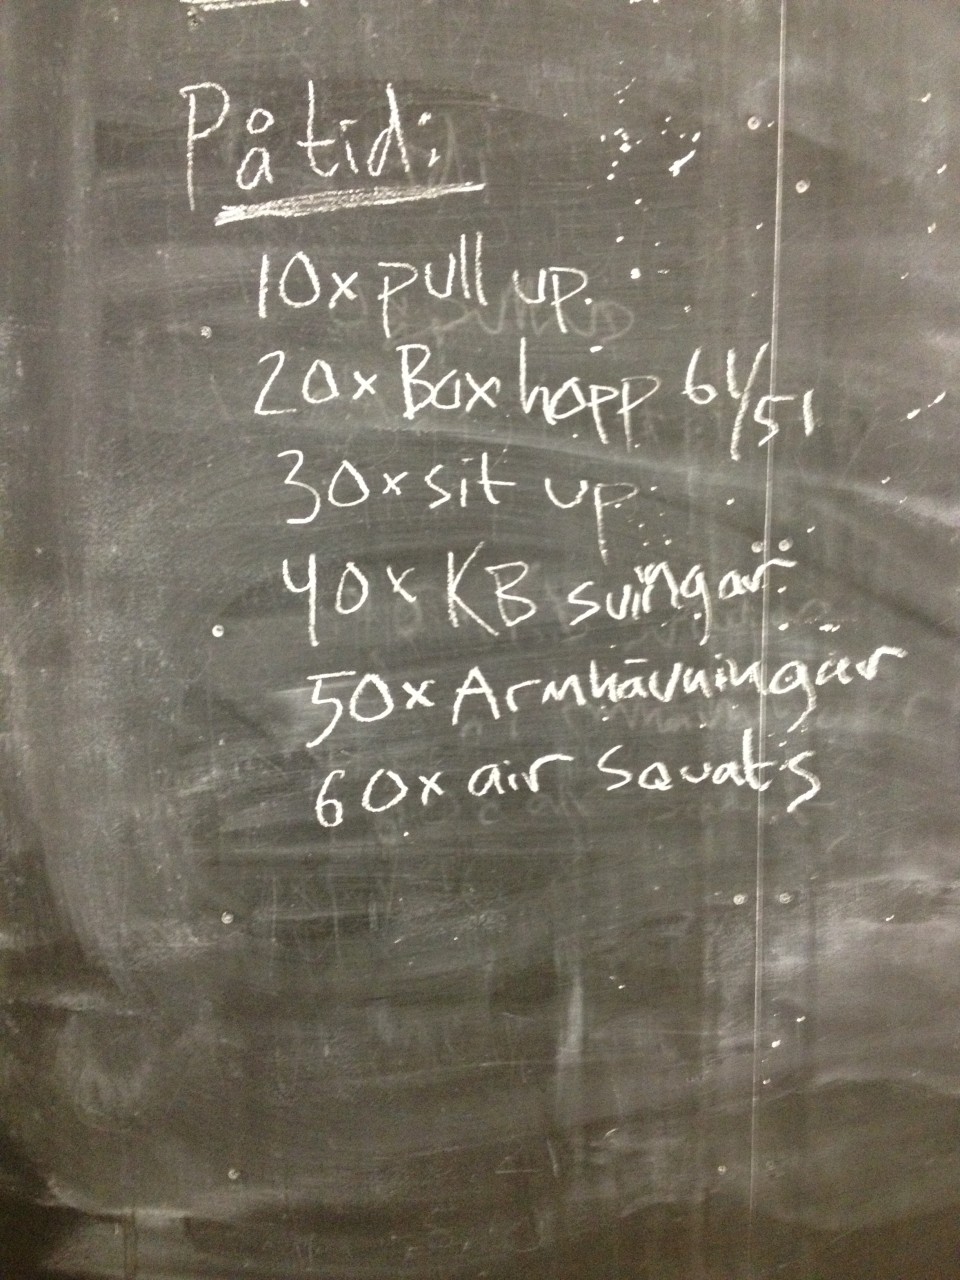 På tid:
10x pull up.
20x Box hopp 61/51
30x sit up
40x KB svingar
50x Armhävningar
60x air squats